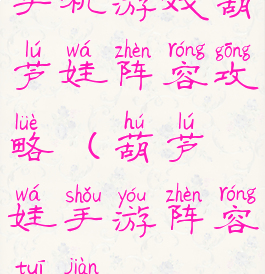 手机游戏葫
lú wá zhèn róng gōng
芦娃阵容攻
lüè hú lú
略（葫芦
wá shǒu yóu zhèn róng
娃手游阵容
tuī jiàn